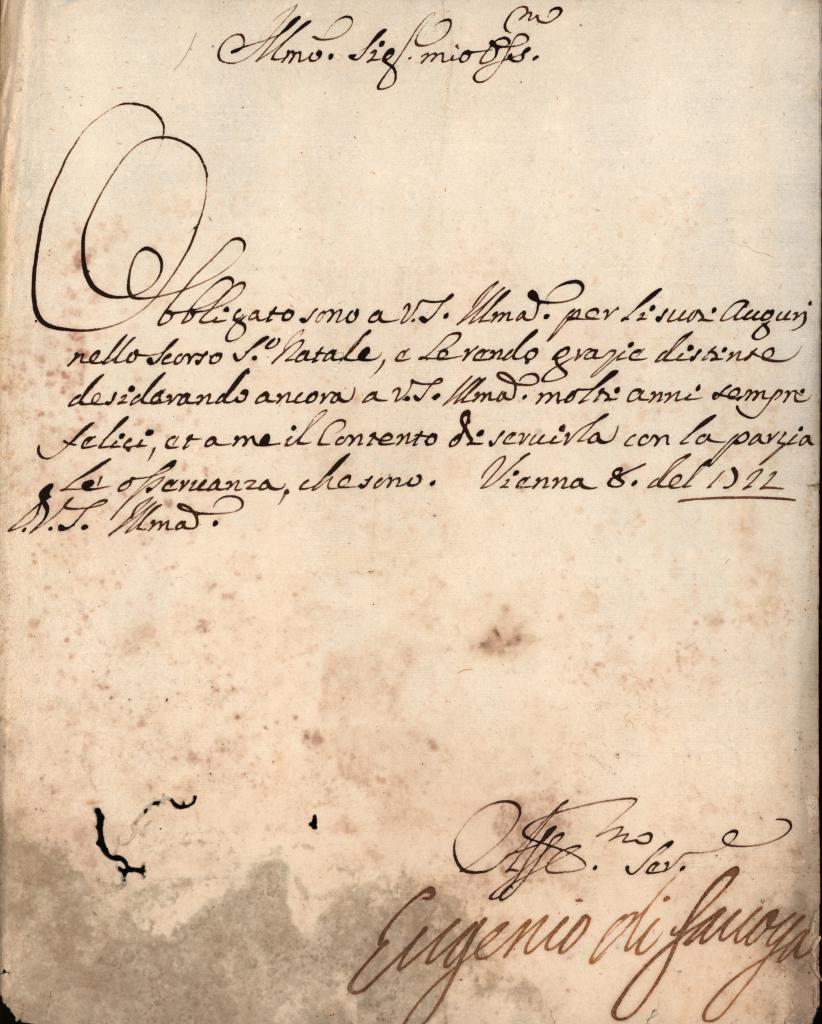 Illmo. Sigr. mio Ossmo.
Obbligato sono a V.S. Illma. per li suoi Augurj
nello scorso S.to Natale, e le rendo grazie distinte
desiderando ancora a V.S. Illma. molti anni sempre
felici, et a me il Contento di seruirla con la parzia
le osseruanza, che sono. Vienna 8. del 1722
D.V.S. Illma.
Affmo. Ser.e
Eugenio di Sauoya